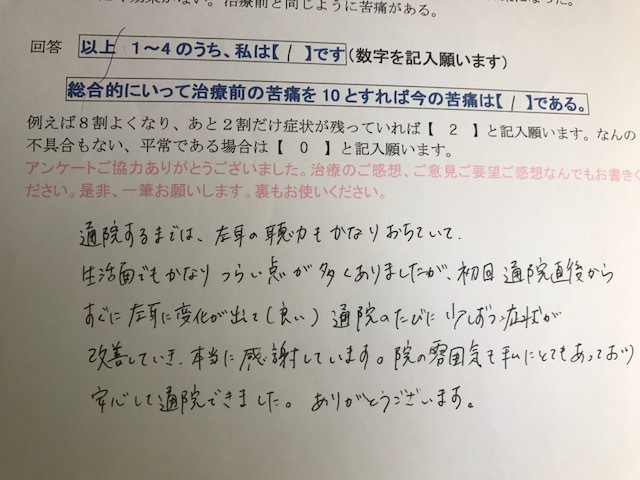 治療前と同じように苦痛がある。
回答 以上 1～4のうち、私は【 1 】です(数字を記入願います)
総合的にいって治療前の苦痛を10とすれば今の苦痛は【 1 】である。
例えば8割よくなり、あと2割だけ症状が残っていれば【 2 】と記入願います。なんの
不具合もない、平常である場合は【 0 】と記入願います。
アンケートご協力ありがとうございました。治療のご感想、ご意見ご要望ご感想なんでもお書きく
ださい。是非、一筆お願いします。裏もお使いください。
通院するまでは、左耳の聴力もかなりおちていて、
生活面でもかなりつらい点が多くありましたが、初回通院直後から
すぐに左耳に変化が出て(良い) 通院のたびに少しずつ症状が
改善していき、本当に感謝しています。院の雰囲気も私にとてもあっており
安心して通院できました。ありがとうございます。